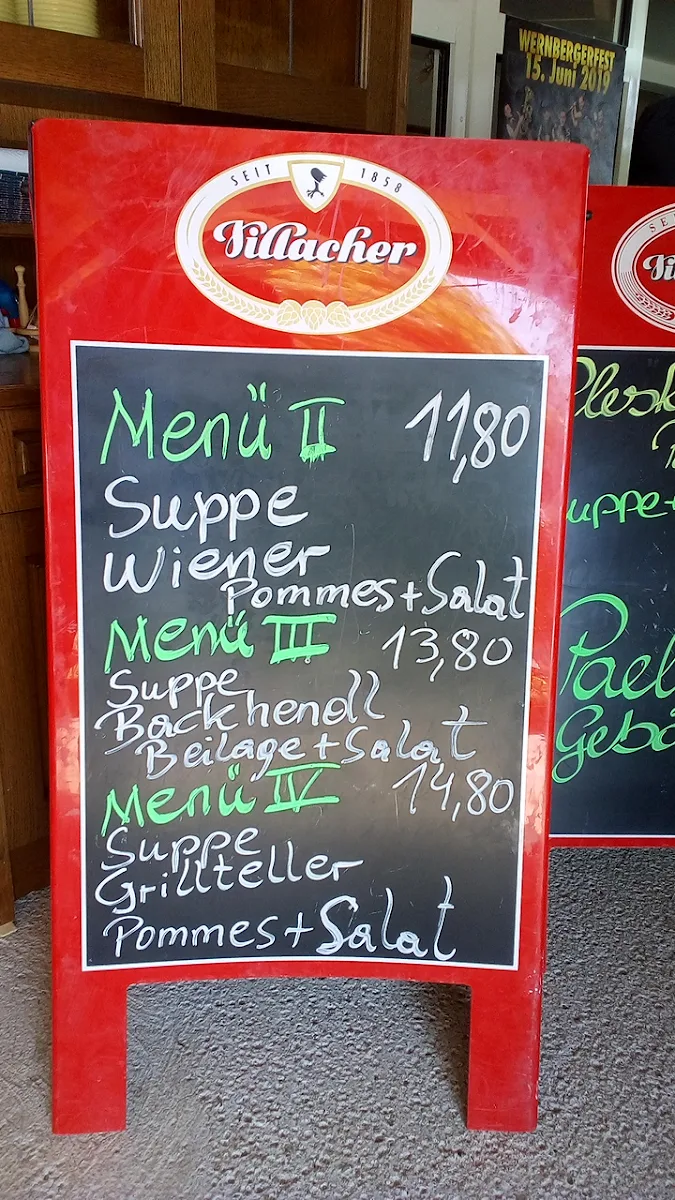 WERNBERGERFEST
15. Juni 2019
SEIT 1858
Villacher
Menü II 11,80
Suppe
Wiener
Pommes+Salat
Menü III 13,80
Suppe
Backhendl
Beilage+Salat
Menü IV 14,80
Suppe
Grillteller
Pommes+Salat